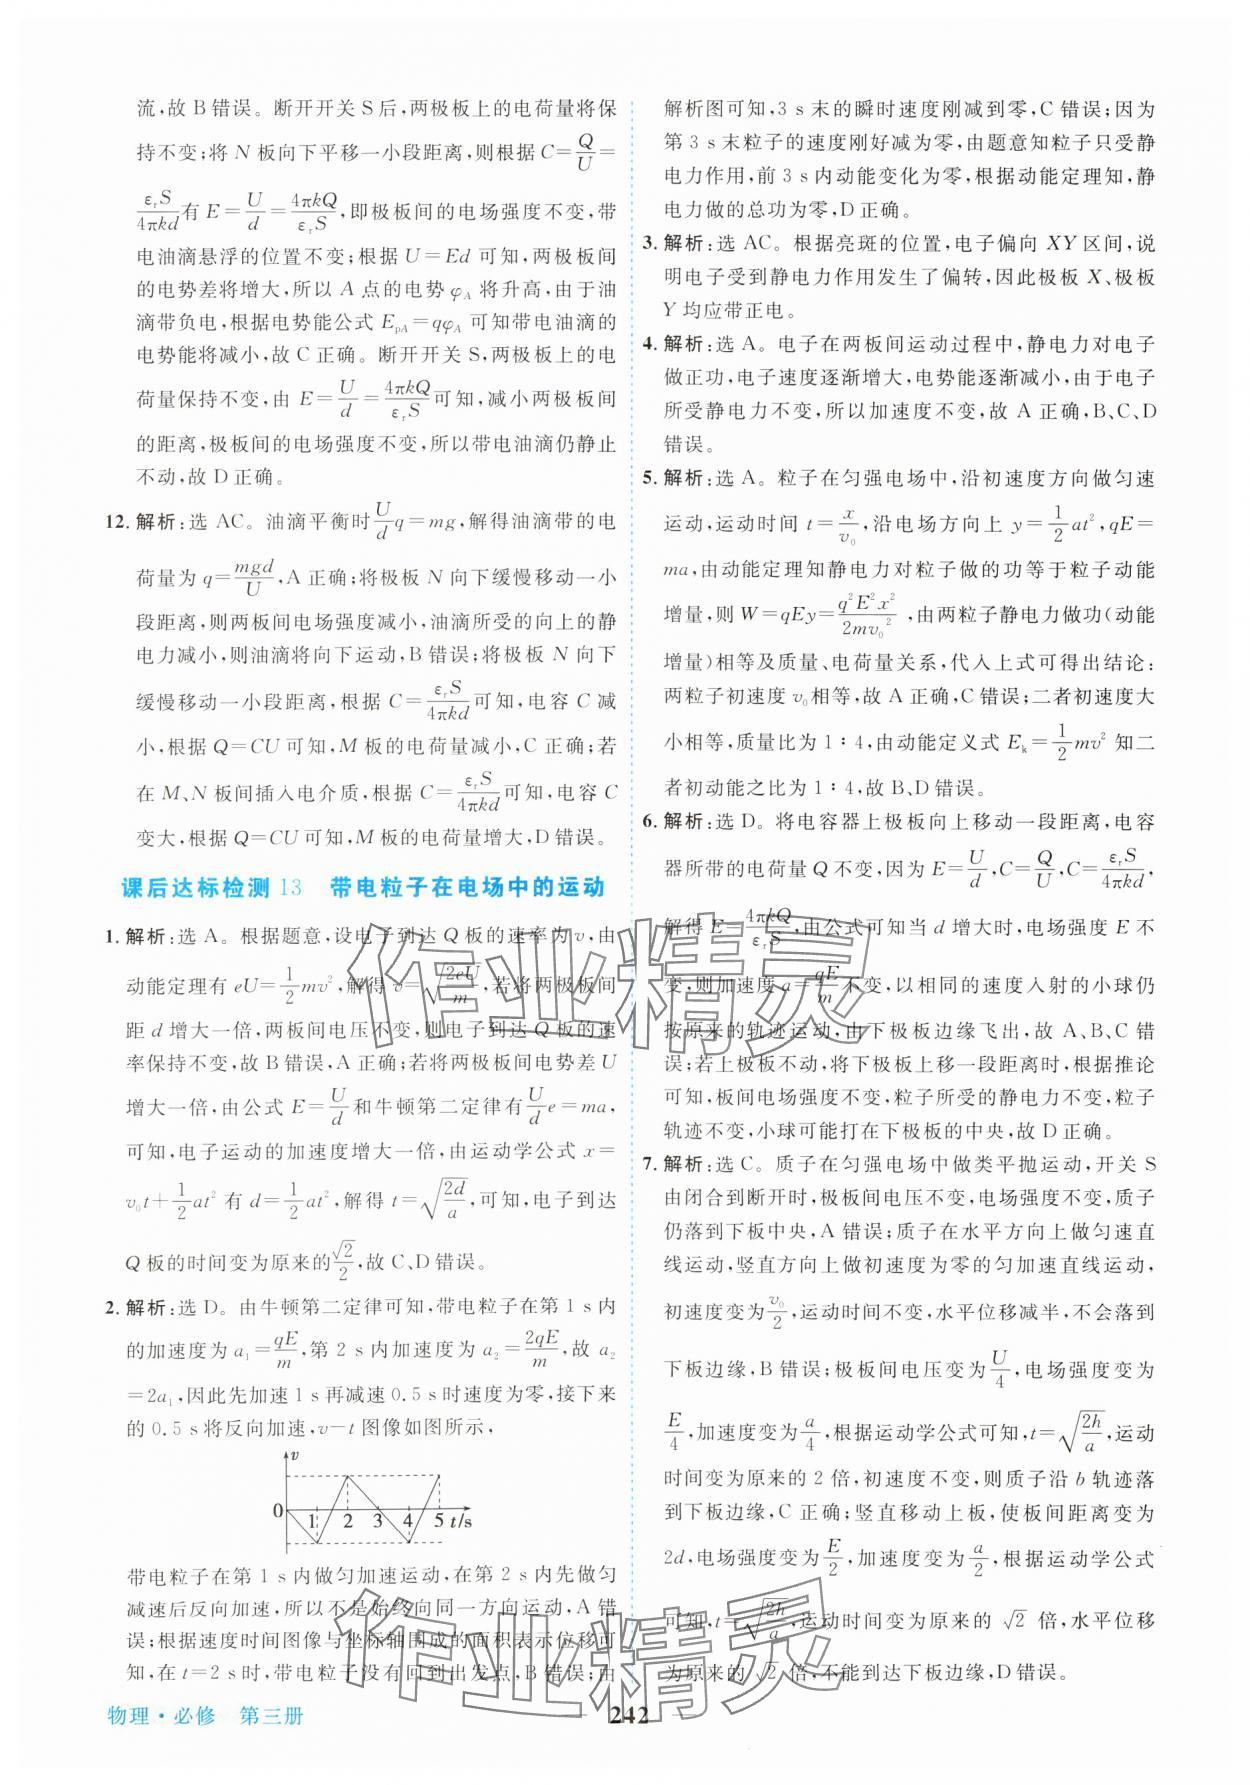 流,故 B 错误。断开开关 S 后,两极板上的电荷量将保
持不变;将 N 板向下平移一小段距离,则根据 C=Q/U=
ε_rS/4πkd 有 E=U/d=4πkQ/ε_rS,即极板间的电场强度不变,带
电油滴悬浮的位置不变;根据 U=Ed 可知,两极板间
的电势差将增大,所以 A 点的电势 φ_A 将升高,由于油
滴带负电,根据电势能公式 E_pA=qφ_A 可知带电油滴的
电势能将减小,故 C 正确。断开开关 S,两极板上的电
荷量保持不变,由 E=U/d=4πkQ/ε_rS 可知,减小两极板间
的距离,极板间的电场强度不变,所以带电油滴仍静止
不动,故 D 正确。
12. 解析:选 AC。油滴平衡时 U/d q=mg,解得油滴带的电
荷量为 q=mgd/U,A 正确;将极板 N 向下缓慢移动一小
段距离,则两板间电场强度减小,油滴所受的向上的静
电力减小,则油滴将向下运动,B 错误;将极板 N 向下
缓慢移动一小段距离,根据 C=ε_rS/4πkd 可知,电容 C 减
小,根据 Q=CU 可知,M 板的电荷量减小,C 正确;若
在 M、N 板间插入电介质,根据 C=ε_rS/4πkd 可知,电容 C
变大,根据 Q=CU 可知,M 板的电荷量增大,D 错误。
课后达标检测 13 带电粒子在电场中的运动
1. 解析:选 A。根据题意,设电子到达 Q 板的速率为 v,由
动能定理有 eU=1/2 mv²,解得 v=√(2eU/m),若将两极板间
距 d 增大一倍,两板间电压不变,则电子到达 Q 板的速
率保持不变,故 B 错误,A 正确;若将两极板间电势差 U
增大一倍,由公式 E=U/d 和牛顿第二定律有 U/d e=ma,
可知,电子运动的加速度增大一倍,由运动学公式 x=
v₀t+1/2 at² 有 d=1/2 at²,解得 t=√(2d/a),可知,电子到达
Q 板的时间变为原来的 √2/2,故 C、D 错误。
2. 解析:选 D。由牛顿第二定律可知,带电粒子在第 1 s 内
的加速度为 a₁=qE/m,第 2 s 内加速度为 a₂=2qE/m,故 a₂
=2a₁,因此先加速 1 s 再减速 0.5 s 时速度为零,接下来
的 0.5 s 将反向加速,v-t 图像如图所示,
v
0 1 2 3 4 5 t/s
带电粒子在第 1 s 内做匀加速运动,在第 2 s 内先做匀
减速后反向加速,所以不是始终向同一方向运动,A 错
误;根据速度时间图像与坐标轴围成的面积表示位移可
知,在 t=2 s 时,带电粒子没有回到出发点,B 错误;由
解析图可知,3 s 末的瞬时速度刚减到零,C 错误;因为
第 3 s 末粒子的速度刚好减为零,由题意知粒子只受静
电力作用,前 3 s 内动能变化为零,根据动能定理知,静
电力做的总功为零,D 正确。
3. 解析:选 AC。根据亮斑的位置,电子偏向 XY 区间,说
明电子受到静电力作用发生了偏转,因此极板 X、极板
Y 均应带正电。
4. 解析:选 A。电子在两板间运动过程中,静电力对电子
做正功,电子速度逐渐增大,电势能逐渐减小,由于电子
所受静电力不变,所以加速度不变,故 A 正确,B、C、D
错误。
5. 解析:选 A。粒子在匀强电场中,沿初速度方向做匀速
运动,运动时间 t=x/v₀,沿电场方向上 y=1/2 at²,qE=
ma,由动能定理知静电力对粒子做的功等于粒子动能
增量,则 W=qEy=q²E²x²/2mv₀²,由两粒子静电力做功(动能
增量)相等及质量、电荷量关系,代入上式可得出结论:
两粒子初速度 v₀ 相等,故 A 正确,C 错误;二者初速度大
小相等,质量比为 1∶4,由动能定义式 E_k=1/2 mv² 知二
者初动能之比为 1∶4,故 B、D 错误。
6. 解析:选 D。将电容器上极板向上移动一段距离,电容
器所带的电荷量 Q 不变,因为 E=U/d,C=Q/U,C=ε_rS/4πkd,
解得 E=4πkQ/ε_rS,由公式可知当 d 增大时,电场强度 E 不
变,则加速度 a=qE/m 不变,以相同的速度入射的小球仍
按原来的轨迹运动,由下极板边缘飞出,故 A、B、C 错
误;若上极板不动,将下极板上移一段距离时,根据推论
可知,板间电场强度不变,粒子所受的静电力不变,粒子
轨迹不变,小球可能打在下极板的中央,故 D 正确。
7. 解析:选 C。质子在匀强电场中做类平抛运动,开关 S
由闭合到断开时,极板间电压不变,电场强度不变,质子
仍落到下板中央,A 错误;质子在水平方向上做匀速直
线运动,竖直方向上做初速度为零的匀加速直线运动,
初速度变为 v₀/2,运动时间不变,水平位移减半,不会落到
下板边缘,B 错误;极板间电压变为 U/4,电场强度变为
E/4,加速度变为 a/4,根据运动学公式可知,t=√(2h/a),运动
时间变为原来的 2 倍,初速度不变,则质子沿 b 轨迹落
到下板边缘,C 正确;竖直移动上板,使板间距离变为
2d,电场强度变为 E/2,加速度变为 a/2,根据运动学公式
可知,t=√(2h/a),运动时间变为原来的 √2 倍,水平位移
为原来的 √2 倍,不能到达下板边缘,D 错误。
作业精灵
作业精灵
物理·必修 第三册
242